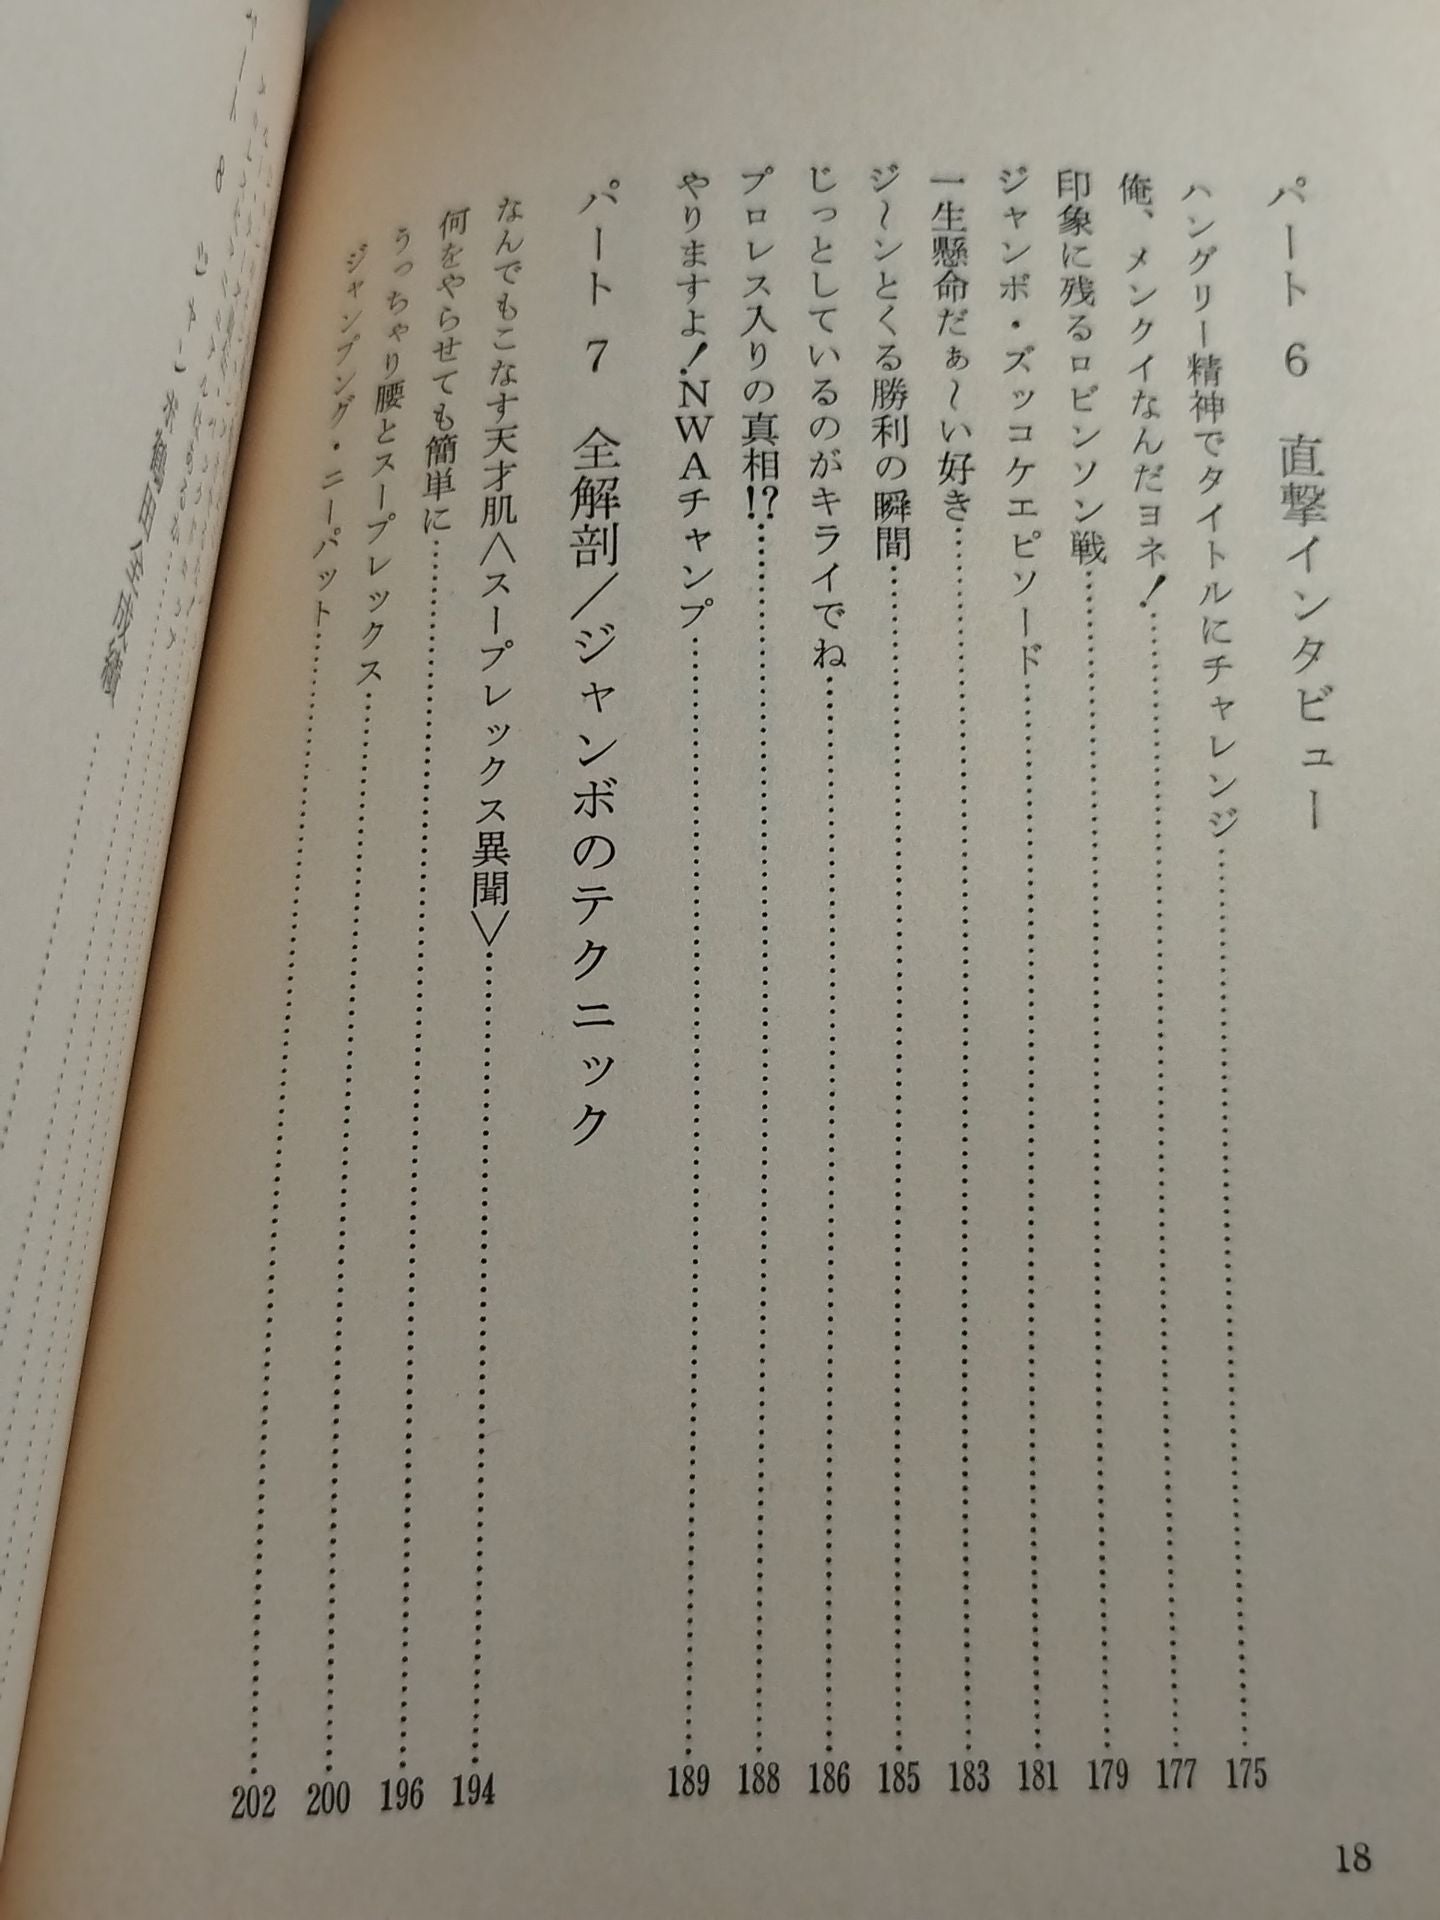 パート6　直撃インタビュー
ハングリー精神でタイトルにチャレンジ……175
俺、メンクイなんだヨネ！……177
印象に残るロビンソン戦……179
ジャンボ・ズッコケエピソード……181
一生懸命だぁ〜い好き……183
ジ〜ンとくる勝利の瞬間……185
じっとしているのがキライでね……186
プロレス入りの真相!?……188
やりますよ！NWAチャンプ……189
パート7　全解剖／ジャンボのテクニック
なんでもこなす天才肌＜スープレックス異聞＞……194
何をやらせても簡単に……196
うっちゃり腰とスープレックス……200
ジャンプング・ニーパット……202
18